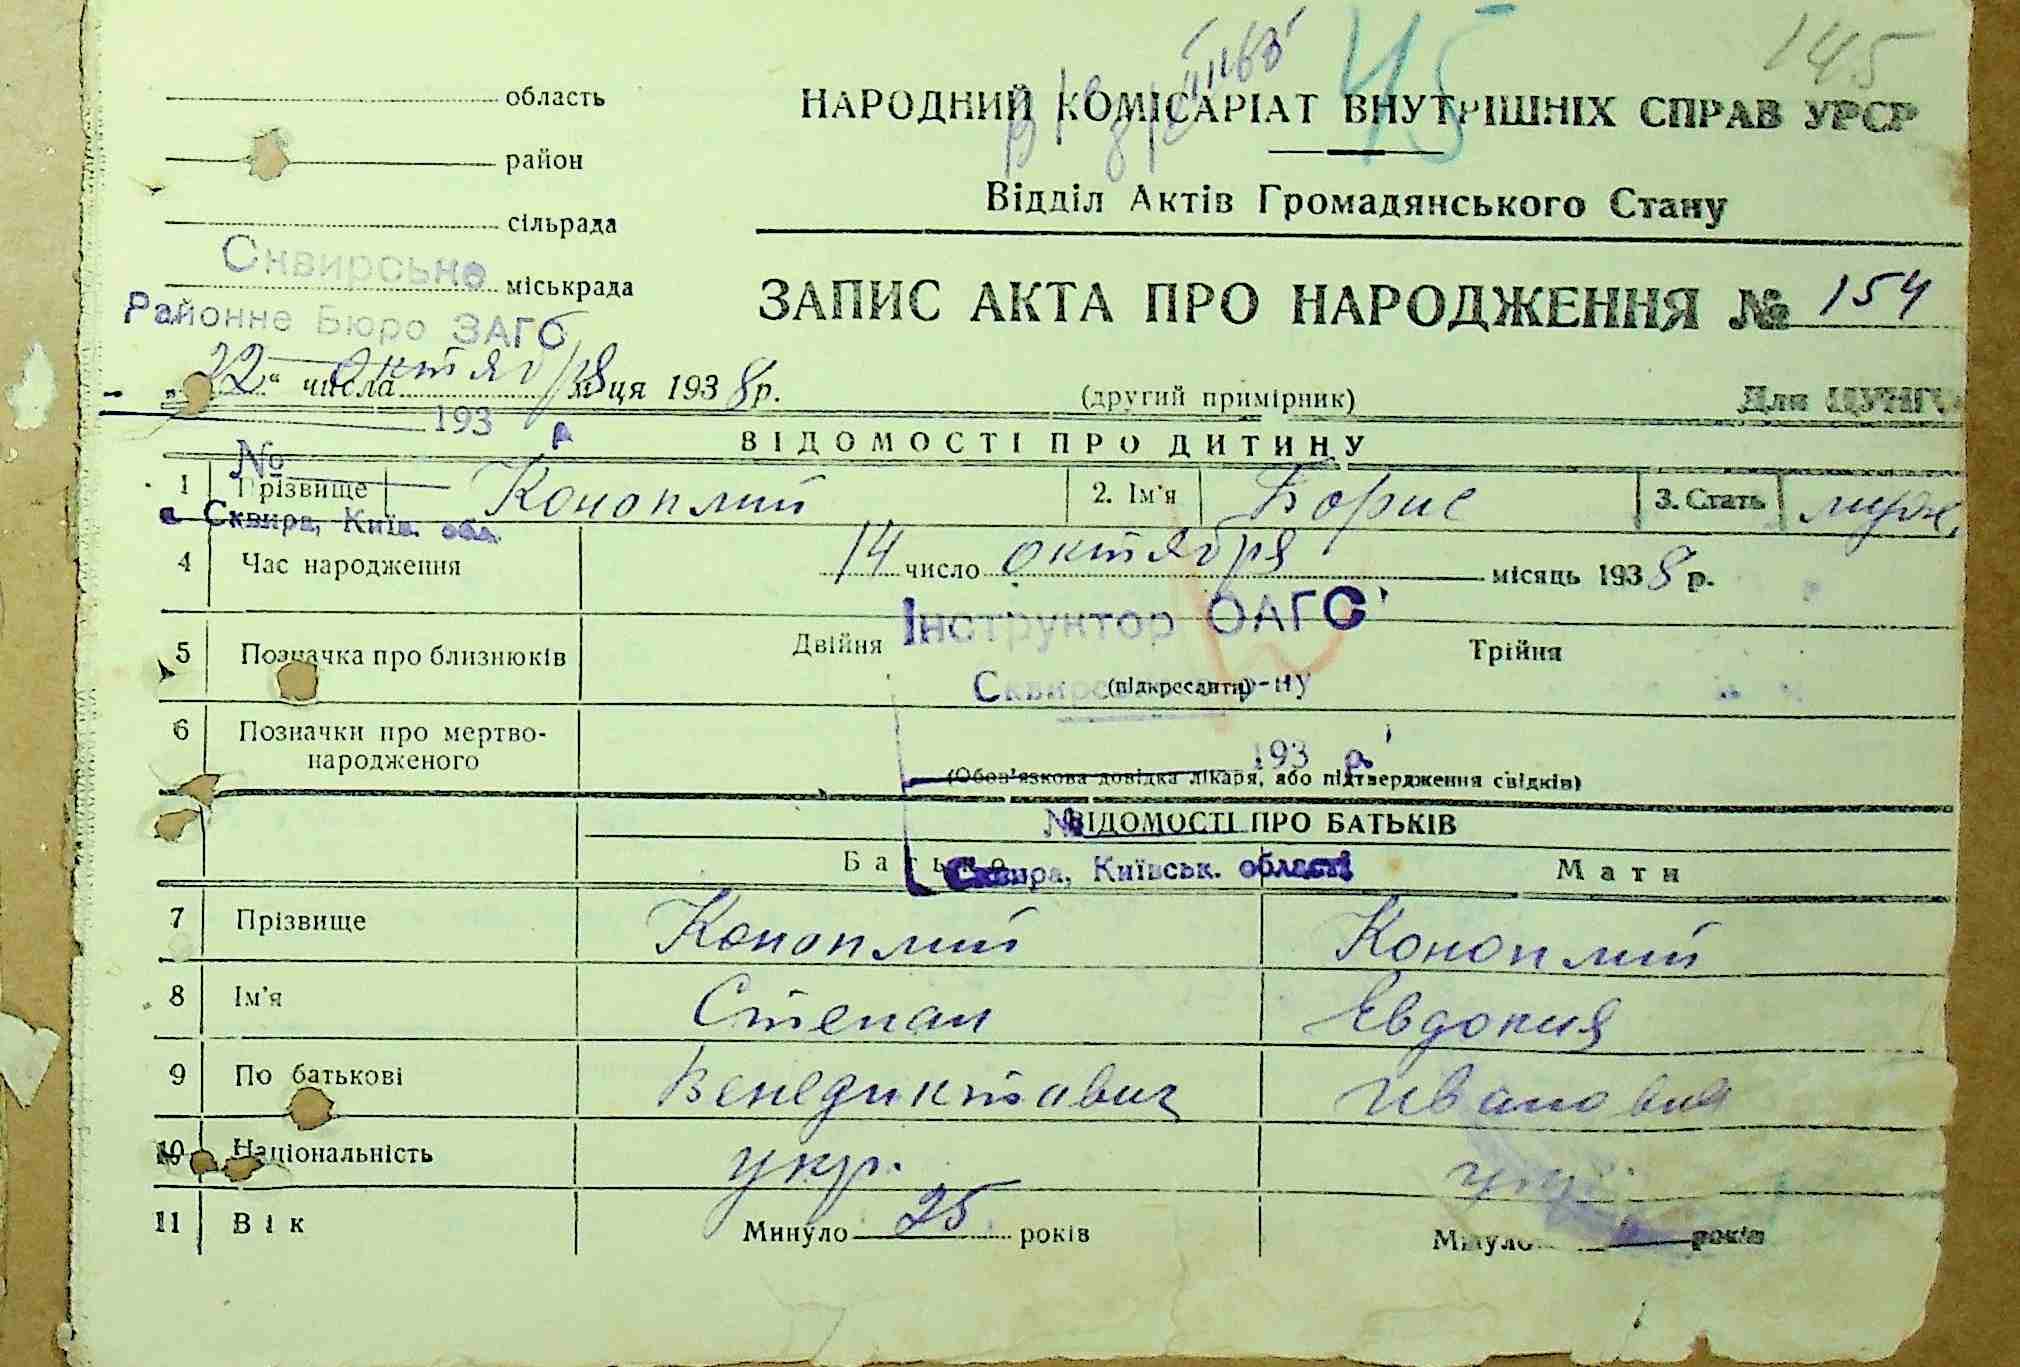 145
45
область
НАРОДНИЙ КОМІСАРІАТ ВНУТРІШНІХ СПРАВ УРСР
район
Відділ Актів Громадянського Стану
сільрада
Сквирське
міськрада
Районне Бюро ЗАГС
ЗАПИС АКТА ПРО НАРОДЖЕННЯ № 154
„22“ числа октября м-ця 1938 р.
(другий примірник)
Для ЦУНГО
193 р
ВІДОМОСТІ ПРО ДИТИНУ
№
1 Прізвище Коноплий 2. Ім'я Борис 3. Стать муж.
м Сквира, Київ. обл.
4 Час народження 14 число октября місяць 1938 р.
Інструктор ОАГС
5 Позначка про близнюків Двійня Трійня
(підкреслити)
Сквирського р-ну
6 Позначки про мертво-
народженого
193 р.
(Обов'язкова довідка лікаря, або підтвердження свідків)
№
ВІДОМОСТІ ПРО БАТЬКІВ
Батько Мати
Сквира, Київськ. області
7 Прізвище Коноплий Коноплий
8 Ім'я Степан Евдокия
9 По батькові Венедиктавич Ивановна
10 Національність укр. укр.
11 Вік Минуло 25 років Минуло років